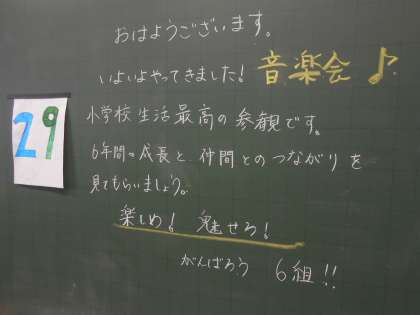 おはようございます。
いよいよやってきました！音楽会♪
29
小学校生活最高の参観です。
6年間の成長と仲間とのつながりを
見てもらいましょう。
楽しめ！ 魅せろ！
がんばろう 6組!!